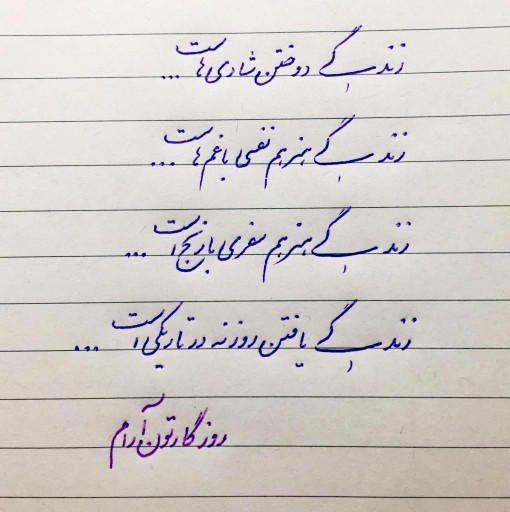 زندگی دوختن شادی هاست ...
زندگی هنر هم نفسی با غم هاست ...
زندگی هنر هم سفری با رنج است ...
زندگی یافتن روزنه در تاریکی است ...
روزگارتون آرام